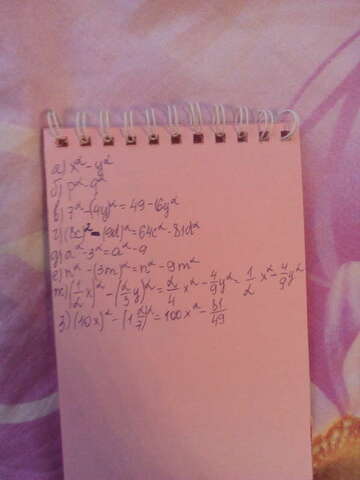 а) x²-y²
б) p²-q²
в) 7²-(4y)²=49-16y²
г) (8c)²-(9d)²=64c²-81d²
д) a²-3²=a²-9
е) n²-(3m)²=n²-9m²
ж) (1/2 x)²-(2/3 y)²=2/4 x²-4/9 y²=1/2 x²-4/9 y²
з) (10x)²-(1 2/7)²=100x²-81/49